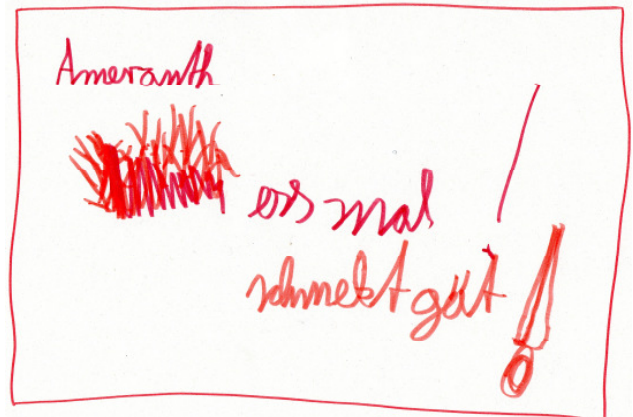 Ameranth
ess mal
schmekt gut!